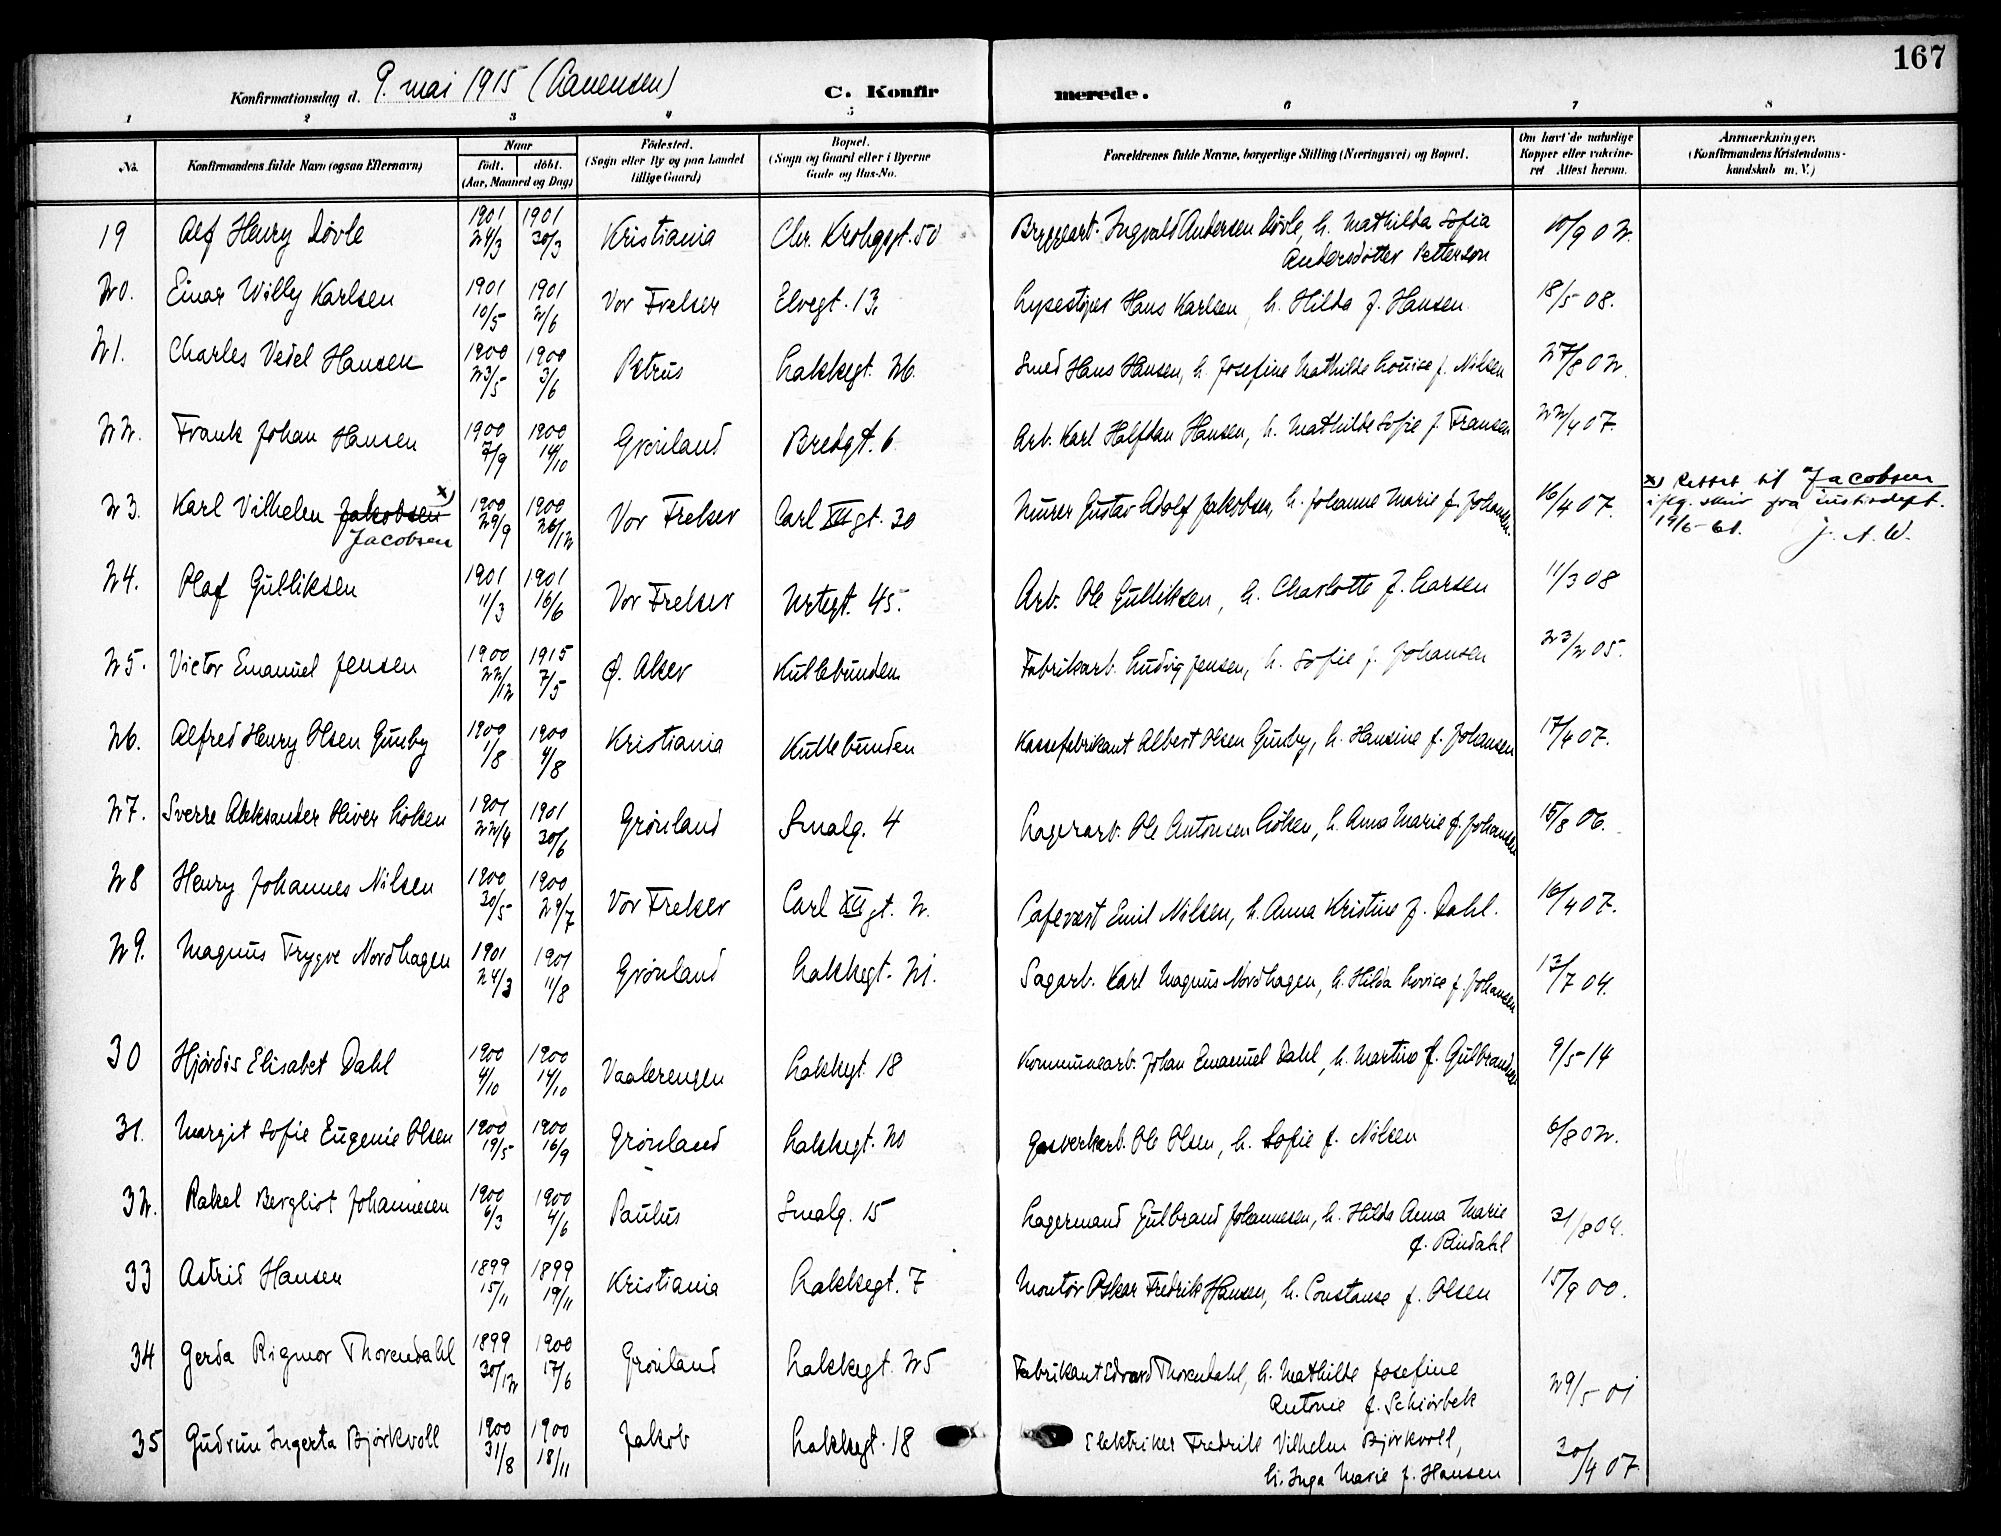 167
Konfirmationsdag d. 9. mai 1915
C. Konfirmerede.
1 2 3 4 5 6 7 8
No. Konfirmandens fulde Navn (ogsaa Efternavn) Naar født. døbt. (Aar, Maaned og Dag) Fødested. (Sogn eller By og paa Landet tillige Gaard) Bopæl. (Sogn og Gaard eller i Byerne Gade og Hus-No. Forældrenes fulde Navne, borgerlige Stilling (Næringsvei) og Bopæl. Om havt de naturlige Kopper eller vaccineret Attest herom. Anmærkninger. (Konfirmandens Kristendomskundskab m. V.)
19 Alf Henry Løvle 1901 24/3 1901 30/3 Kristiania Chr. Krohgsgt. 50 Bryggeart. Ingvald Andersen Løvle, h. Mathilda Sofia Andersdotter Petterson 10/9 02.
20. Einar Willy Karlsen 1901 10/5 1901 2/6 Vor Frelser Elvegt. 13. Lysestøper Hans Karlsen, h. Hilda f. Hansen. 18/5 08.
21. Charles Vedel Hansen 1900 23/5 1900 3/6 Petrus Lakkegt. 26. Smed Hans Hansen, h. Josefine Mathilde Louise f. Nilsen 27/8 02.
22. Frank Johan Hansen 1900 7/9 1900 14/10 Grønland Bredgt. 6 Arb. Karl Halfdan Hansen, h. Mathilde Sofie f. Fransen 22/4 07.
23. Karl Vilhelm Jakobsen x) Jacobsen 1900 29/9 1900 26/12 Vor Frelser Carl XII gt. 30 Murer Gustav Adolf Jakobsen, h. Johanne Marie f. Johansen. 16/4 07. x) Rettet til Jacobsen iflg. skriv fra justisdept. 19/6-61. J. A. W.
24. Olaf Gulliksen 1901 11/3 1901 16/6 Vor Frelser Urtegt. 45. Arb. Ole Gulliksen, h. Charlotte f. Larsen 11/3 08
25. Victor Emanuel Jensen 1900 22/12 1915 7/5 Ø. Aker Kullebunden Fabrikarb. Ludvig Jensen, h. Sofie f. Johansen 23/2 05.
26. Alfred Henry Olsen Gunby 1900 1/8 1900 4/8 Kristiania Kullebunden Kassefabrikant Albert Olsen Gunby, h. Hansine f. Johansen 17/4 07.
27. Sverre Aleksander Oliver Løken 1901 22/4 1901 30/6 Grønland Smalg. 4 Lagerarb. Ole Antonsen Løken, h. Anna Marie f. Johansen 15/8 06.
28 Henry Johannes Nilsen 1900 30/5 1900 29/7 Vor Frelser Carl XII gt. 2. Cafevært Emil Nilsen, h. Anna Kristine f. Dahl. 16/4 07.
29. Magnus Trygve Nordhagen 1901 24/3 1901 11/8 Grønland Lakkegt. 21. Sagarb. Karl Magnus Nordhagen, h. Hilda Lovise f. Johansen 13/7 04.
30 Hjørdis Elisabet Dahl 1900 4/10 1900 14/10 Vaalerengen Lakkegt 18 Kommunearb. Johan Emanuel Dahl, h. Martine f. Gulbrandsen 9/5-14
31. Margit Sofie Eugenie Olsen 1900 19/5 1900 16/9 Grønland Lakkegt. 20 Gasverkarb. Ole Olsen, h. Sofie f. Nilsen 6/8 02.
32. Rakel Bergliot Johannesen 1900 6/3 1900 4/6 Paulus Smalg. 15 Lagermand Gulbrand Johannesen, h. Hilda Anna Marie f. Rindahl 31/8 04.
33 Astrid Hansen 1899 15/11 1899 19/11 Kristiania Lakkegt. 7 Montør Oskar Fredrik Hansen, h. Constanse f. Olsen 15/9 00.
34 Gerda Rigmor Thorendahl 1899 30/12 1900 17/6 Grønland Lakkegt. 25 Fabrikant Edvard Thorendahl, h. Mathilde Josefine Antonie f. Schiørbek 29/5 01
35 Gudrun Ingerta Bjørkvoll 1900 31/8 1900 18/11 Jakob Lakkegt. 18 Elektriker Fredrik Vilhelm Bjørkvoll, h. Inga Marie f. Hansen 30/4 07